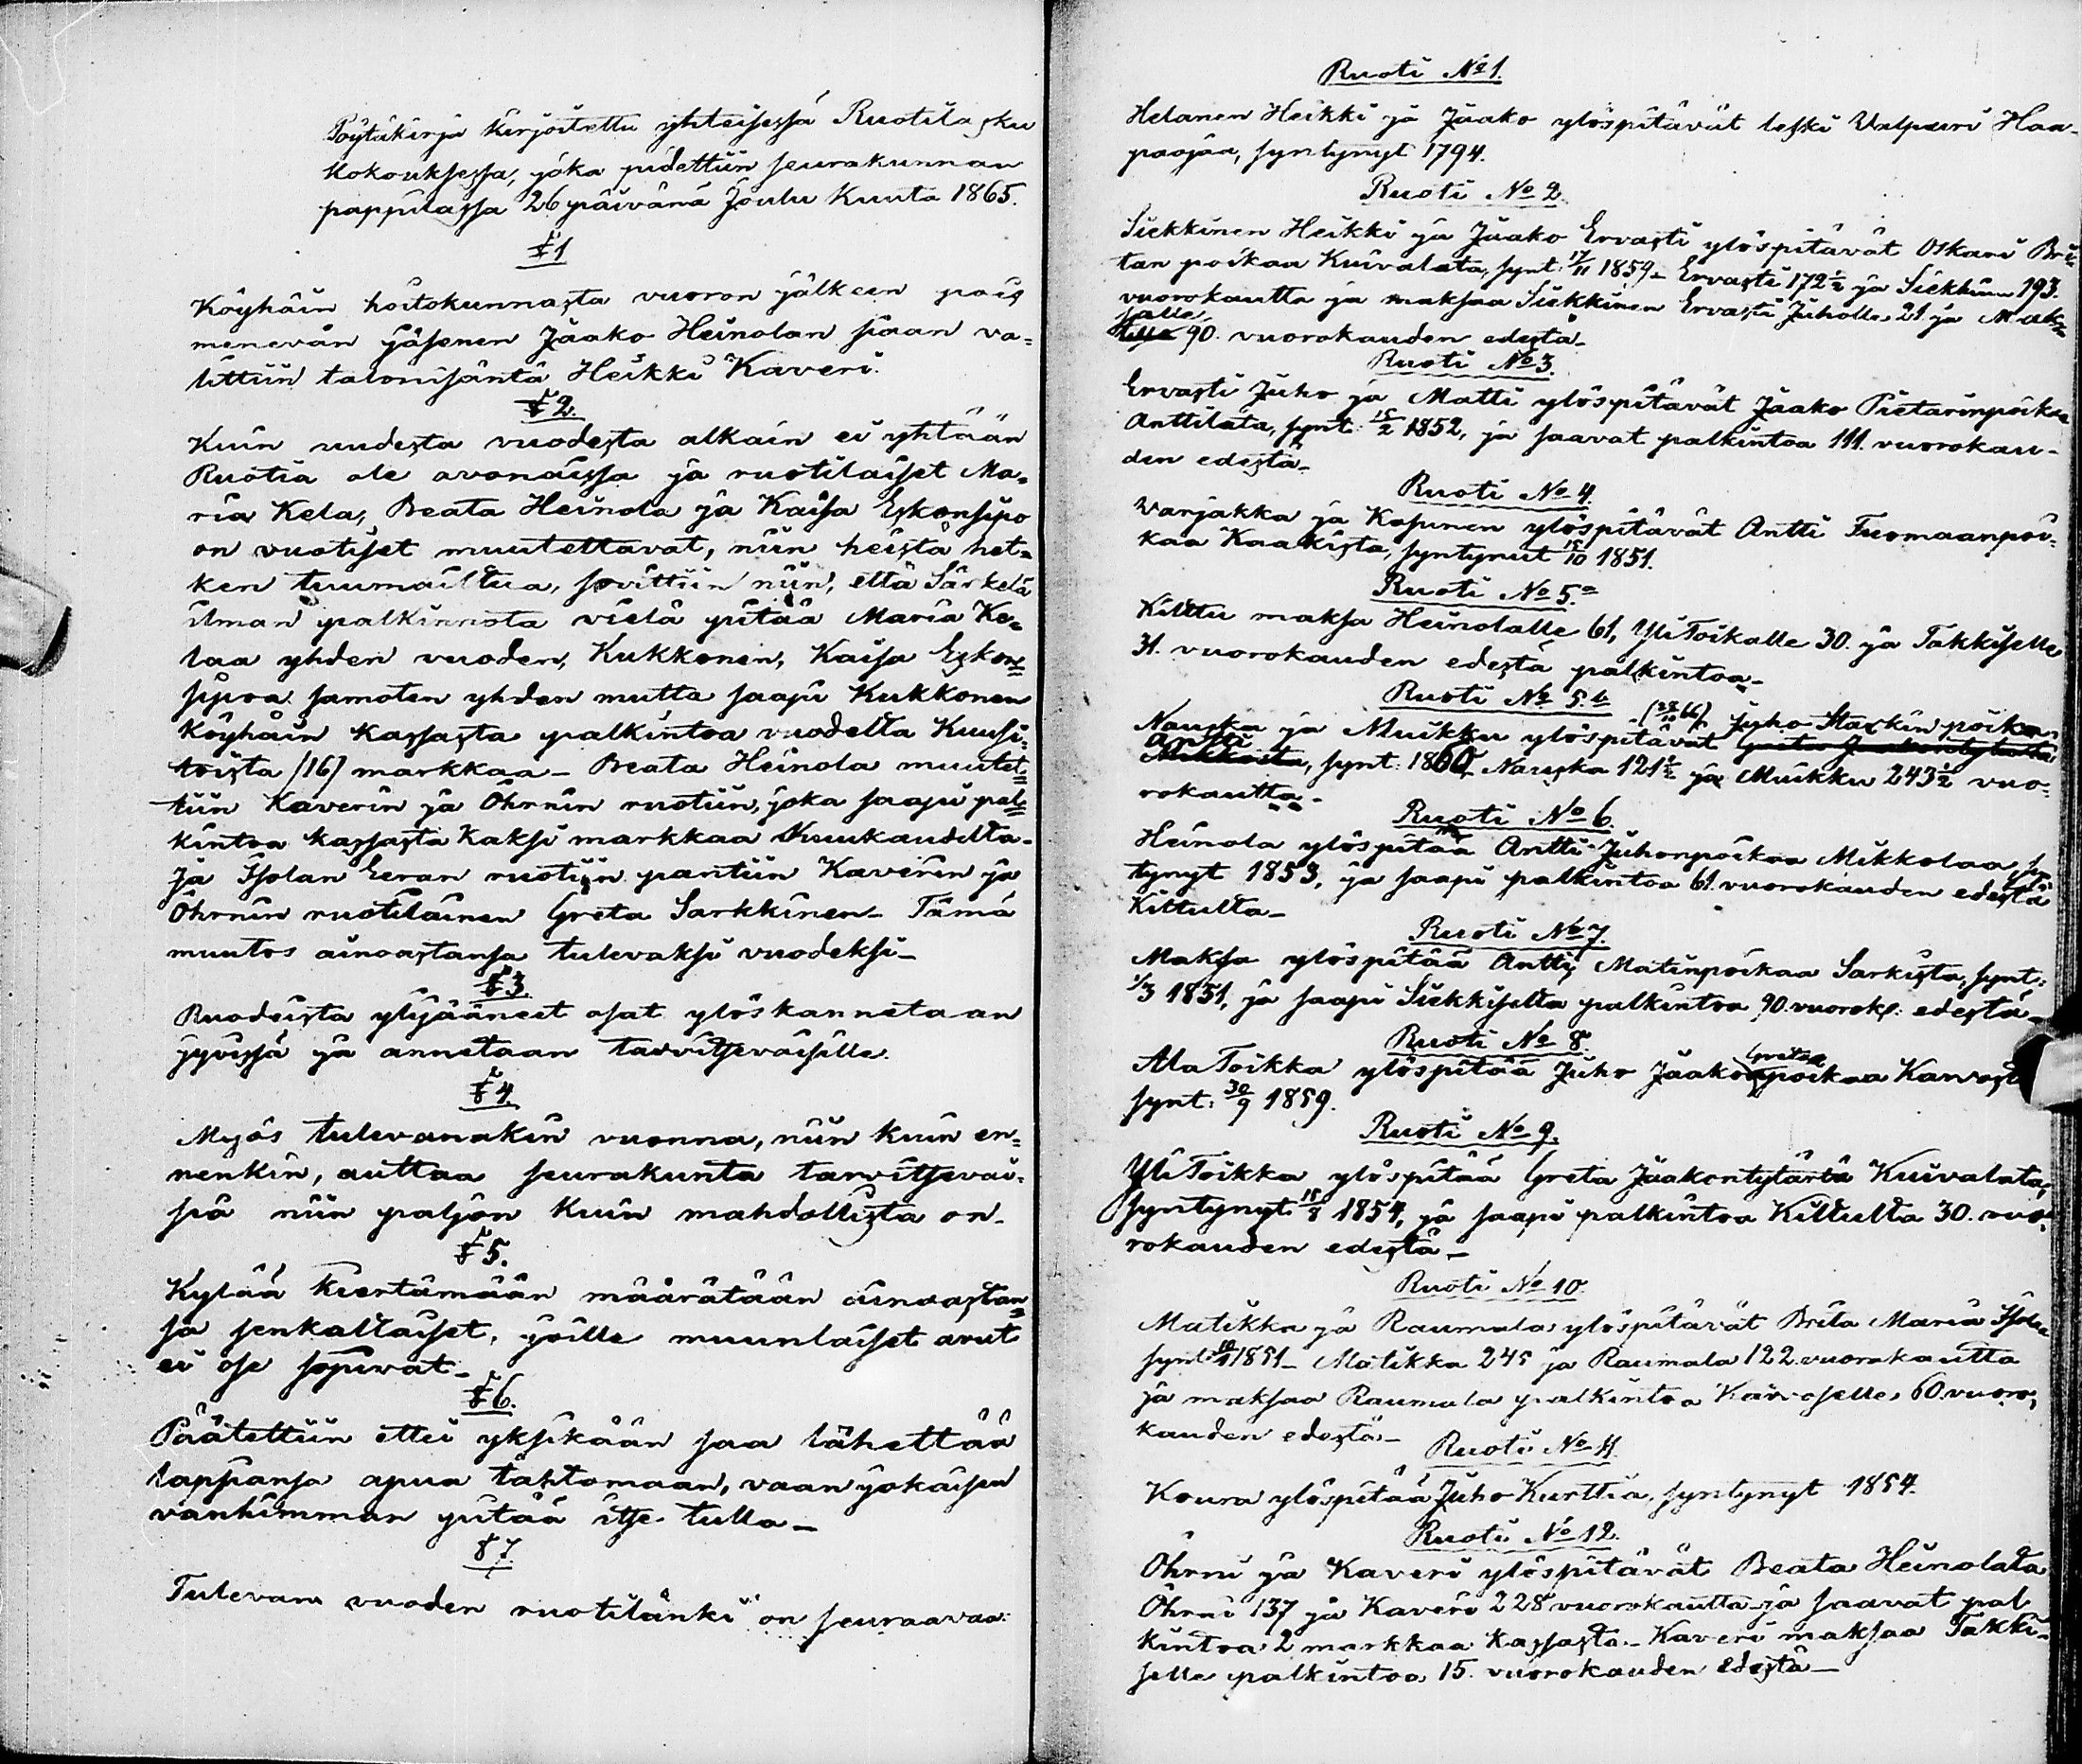 Pöytäkirja kirjoitettu yhteisessä Ruotilasku
kokouksessa, joka pidettiin seurakunnan
pappilassa 26 päivänä Joulu Kuuta 1865.
§ 1
Köyhäin hoitokunnasta vuoron jälkeen pois
menevän jäsenen Jaako Heinolan siaan va=
littiin talonisäntä Heikki Kaveri.
§ 2.
Kuin uudesta vuodesta alkain ei yhtään
Ruotia ole avonaissa ja ruotilaiset Ma=
ria Kela, Beata Heinola ja Kaisa Eskonsipo
on vuotiset muutettavat, niin heistä het=
ken tuumailtua, sovittiin niin, että Särkelä
ilman palkinnota vielä pitää Maria Ke=
laa yhden vuoden, Kukkonen, Kaisa Eskon=
sipoa samoten yhden mutta saapi Kukkonen
Köyhäin kassasta palkintoa vuodelta Kuusi=
toista (16) markkaa – Beata Heinola muutet=
tiin Kaverin ja Öhrnin ruotiin, joka saapi pal=
kintoa kassasta kaksi markkaa Kuukaudelta –
Ja Isolan Eeran ruotiin pantiin Kaverin ja
Öhrnin ruotilainen Greta Sarkkinen – Tämä
muutos ainoastansa tulevaksi vuodeksi –
§ 3.
Ruodeista ylijääneet osat ylöskannetaan
jyvissä ja annetaan tarvitsevaisille.
§ 4.
Myös tulevanakin vuonna, niin kuin en=
nenkin, auttaa seurakunta tarvitsevai=
siä niin paljon kuin mahdollista on –
§ 5.
Kylää kiertämään määrätään ainoastan=
sa senkaltaiset, joille muunlaiset avut
ei ose sopivat –
§ 6.
Päätettiin ettei yksikään saa lähettää
lapsiansa apua tahtomaan, vaan jokaisen
vanhimman pitää itse tulla –
§ 7.
Tulevan vuoden ruotilänki on seuraava:
Ruoti No 1.
Helanen Heikki ja Jaako ylöspitävät leski Valpuri Haa=
paojaa, syntynyt 1794.
Ruoti No 2.
Siekkinen Heikki ja Jaako Ervasti ylöspitävät Oskari Bri=
tan poikaa Kuivalata, synt: 17/11 1859 – Ervasti 172 1/2 ja Siekkinen 193.
vuorokautta ja maksaa Siekkinen Ervasti Juholle 21 ja Mak=
salle 90. vuorokauden edestä –
Ruoti No 3.
Ervasti Juho ja Matti ylöspitävät Jaako Pietarinpoikaa
Anttilata, synt: 15/2 1852, ja saavat palkintoa 111. vuorokau=
den edestä –
Ruoti No 4.
Varjakka ja Kasunen ylöspitävät Antti Tuomaanpoi=
kaa Kaakista, syntynut 15/10 1851.
Ruoti No 5. a
Kilttu maksa Heinolalle 61, YliToikalle 30. ja Takkiselle
31. vuorokauden edestä palkintoa –
Ruoti No 5. b
Nauska ja Muikku ylöspitävät Juho Starkin poikaa
Antti, synt: 1860. Nauska 121 1/2 ja Muikku 243 1/2 vuo=
rokautta –
Ruoti No 6.
Heinola ylöspitää Antti Juhonpoikaa Mikkolaa, syn
tynyt 1853, ja saapi palkintoa 61 vuorokauden edestä
Kiltulta –
Ruoti No 7.
Maksa ylöspitää Antti Matinpoikaa Sarkista, synt:
1/3 1851, ja saapi Siekkiseltä palkintoa 90. vuorok: edestä –
Ruoti No 8.
AlaToikka ylöspitää Juho Jaako Gretan poikaa Karvosta
synt: 30/9 1859.
Ruoti No 9.
YliToikka ylöspitää Greta Jaakontytärtä Kuivalata,
syntynyt 15/8 1854, ja saapi palkintoa Kiltulta 30. vuo=
rokauden edestä –
Ruoti No 10.
Matikka ja Raumala ylöspitävät Brita Maria Isolaa
synt: 1851 – Matikka 245 ja Raumala 122. vuorokautta
ja maksaa Raumala palkintoa 60. vuoro=
kauden edestä –
Ruoti No 11.
Koura ylöspitää Juho Kurttia, syntynyt 1854.
Ruoti No 12.
Öhrni ja Kaveri ylöspitävät Beata Heinolata
Öhrni 137 ja Kaveri 228 vuorokautta ja saavat pal
kintoa 2 markkaa kassasta – Kaveri maksaa Takki=
selle palkintoa 15. vuorokauden edestä –